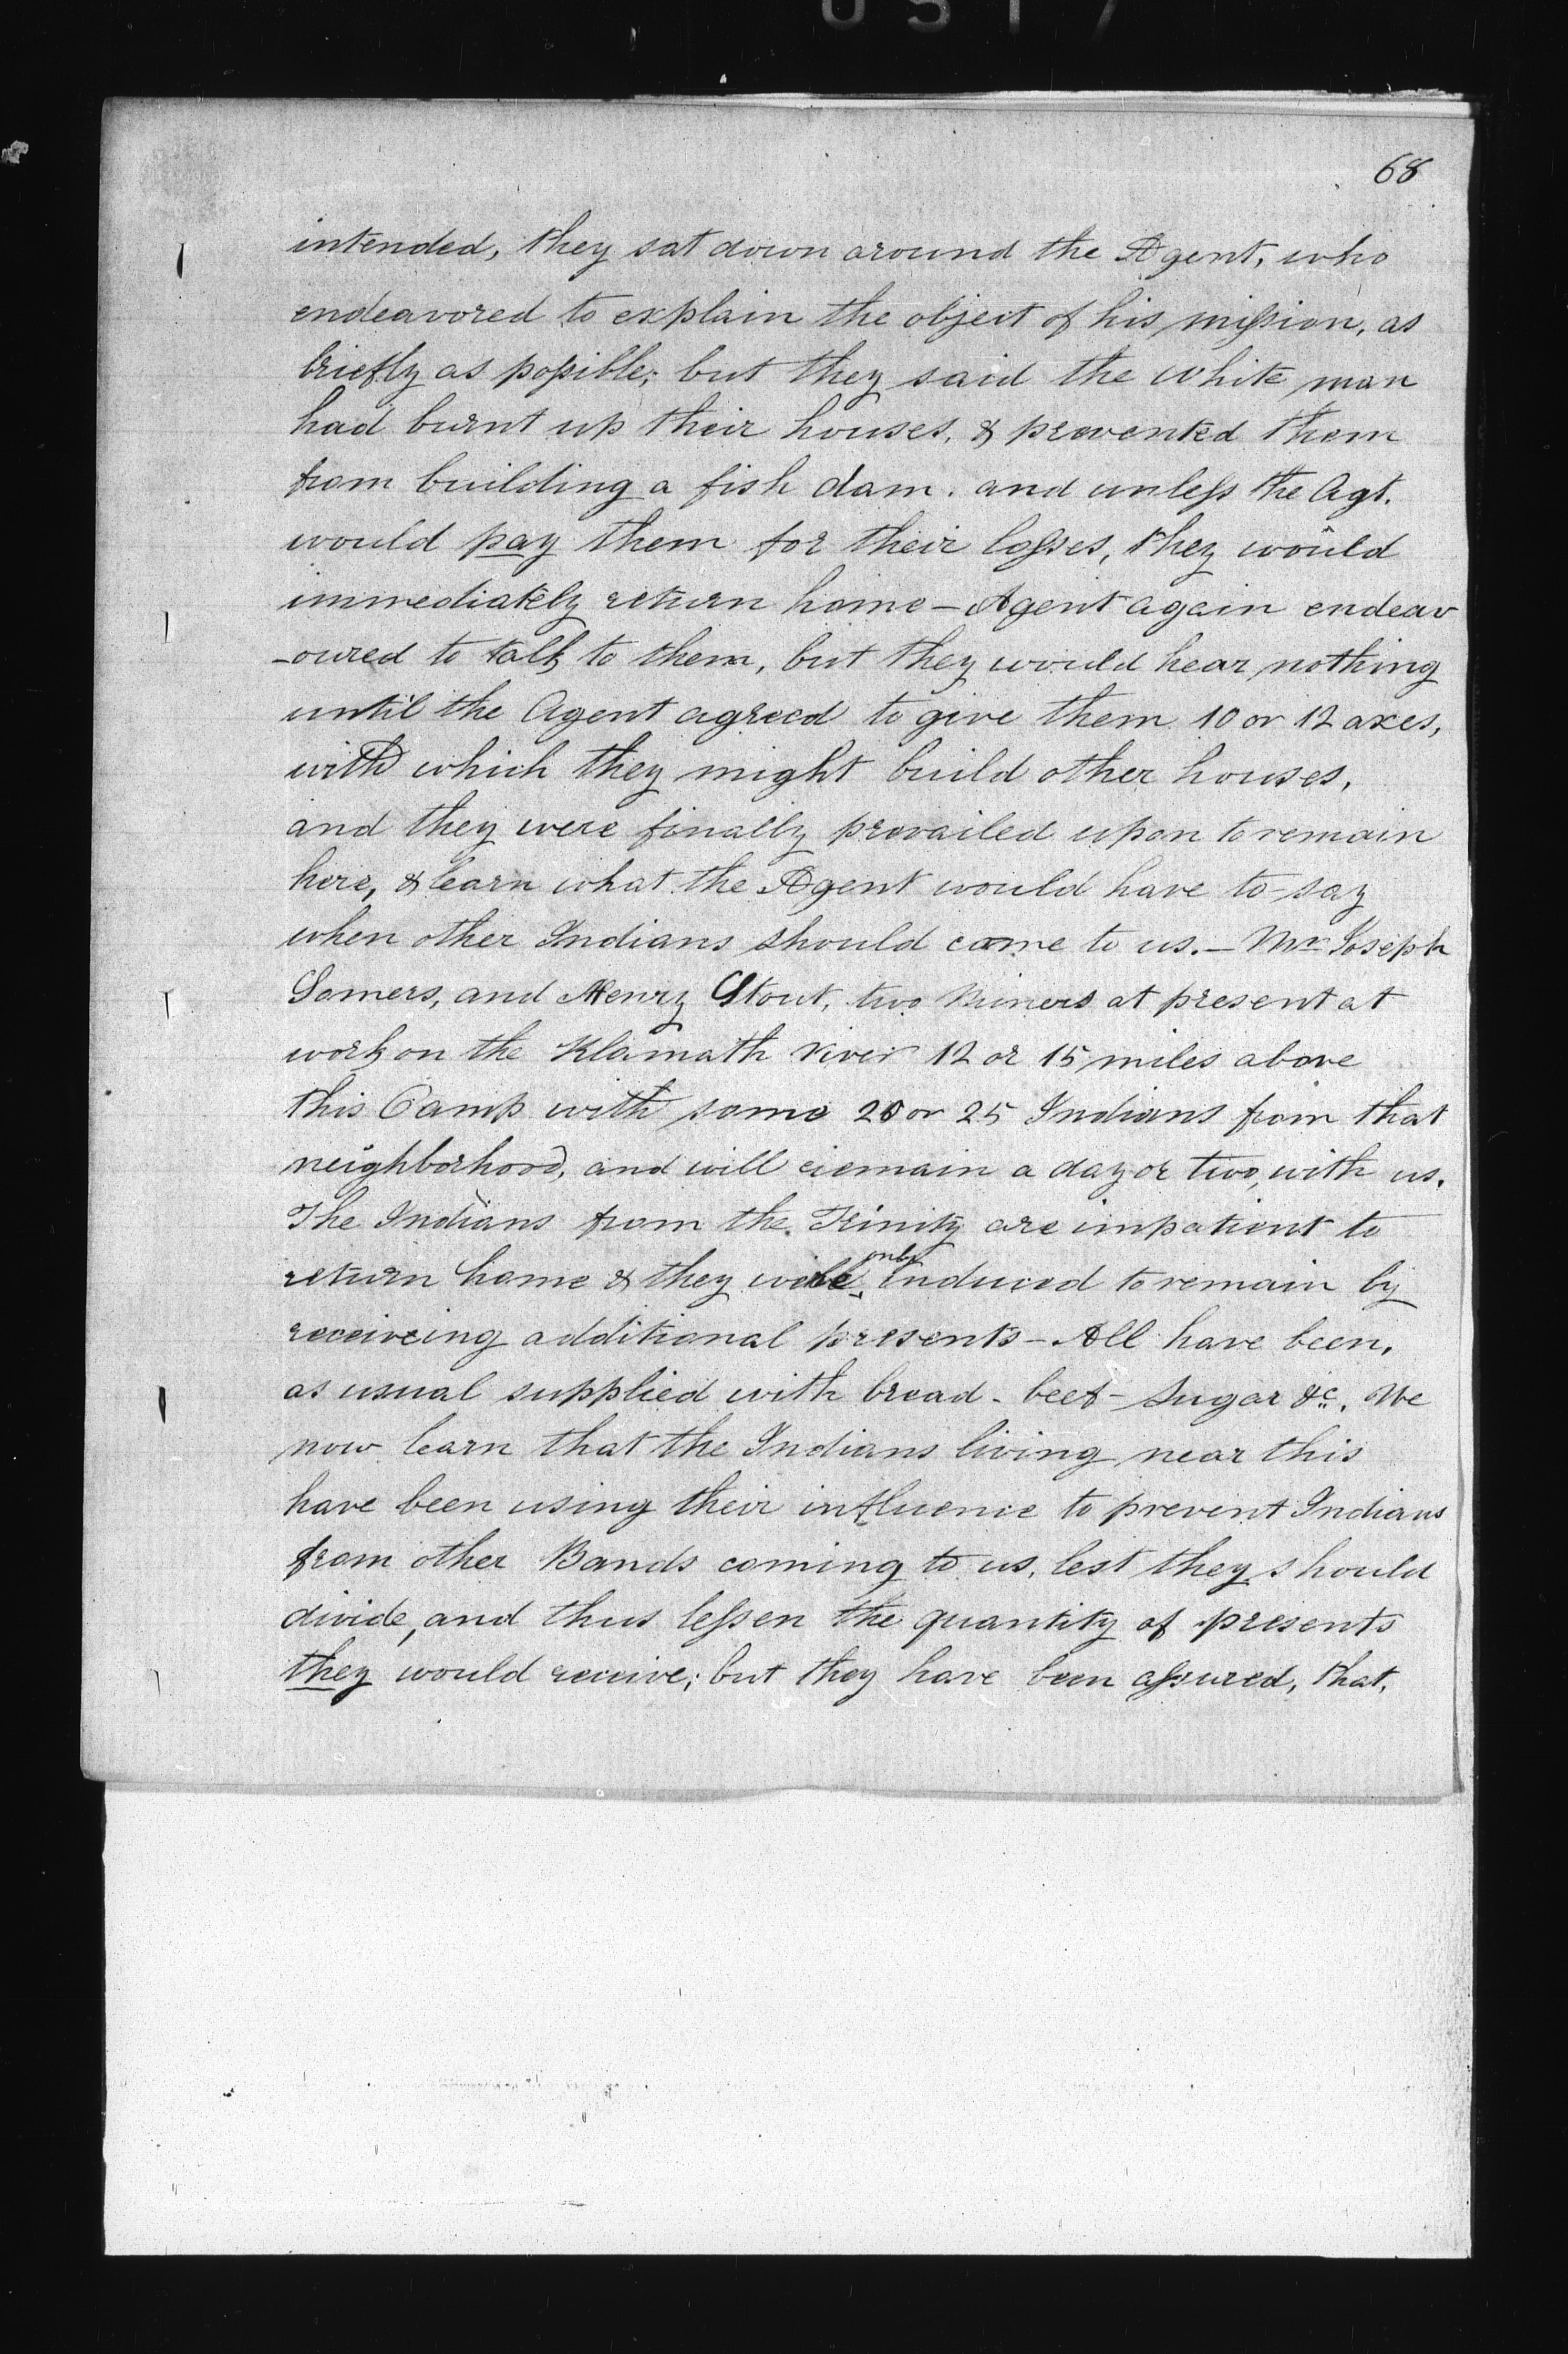 68
intended, they sat down around the Agent, who
endeavored to explain the object of his miſsion, as
briefly as poſsible; but they said the white man
had burnt up their houses, & prevented them
from building a fish dam. and unleſs the Agt.
would pay them for their loſses, they would
immediately return home – Agent again endeav
-oured to talk to them, but they would hear nothing
until the Agent agreed to give them 10 or 12 axes,
with which they might build other houses,
and they were finally prevailed upon to remain
here, & learn what the Agent would have to say
when other Indians should come to us. – Mr Joseph
Somers, and Henry Stout, two Miners at present at
work on the Klamath river 12 or 15 miles above
this Camp with some 20 or 25 Indians from that
neighborhood, and will remain a day or two, with us.
The Indians from the Trinity are impatient to
return home & they were only induced to remain by
receiveing additional presents – All have been,
as usual supplied with bread - beef - sugar &c. We
now learn that the Indians living near this
have been using their influence to prevent Indians
from other Bands coming to us, lest they should
divide, and thus leſsen the quantity of presents
they would receive; but they have been aſsured, that,